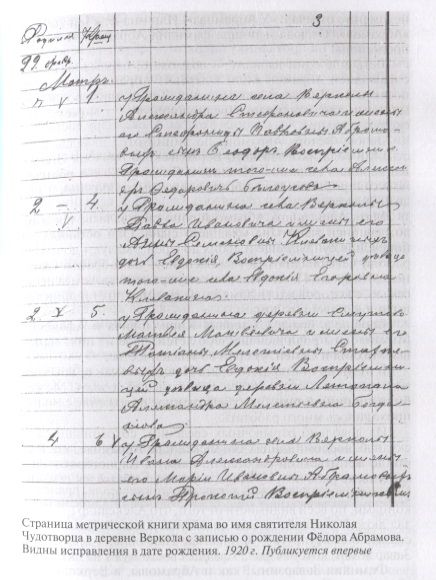 3
Родился Крещ
29 февр.
Мартъ.
п V 1. у Гражданина села Верколы
Александра Стефановича и жены
его Стефаниды Павловны Абрамо-
выхъ сынъ Ѳеодоръ. Воспріемникъ
Гражданинъ того-же села
Ѳедоровичъ
2 – V 4. у Гражданина села Верколы
Павла Ивановича и жены его
Анны Семеновны
дочь Евдокія. Воспріемницей дѣвица
того-же села Евдокія Егоровна
2 V 5. у Гражданина деревни
Матвѣя и жены его
Татіаны
дочь Евдокія. Воспріемни-
цей дѣвица деревни
Александра
4 6 у Гражданина села Верколы
Ивана Александровича и жены
его Маріи Ивановны Абрамовыхъ
сынъ Прокопій. Воспріемникомъ
Страница метрической книги храма во имя святителя Николая
Чудотворца в деревне Веркола с записью о рождении Фёдора Абрамова.
Видны исправления в дате рождения. 1920 г. Публикуется впервые